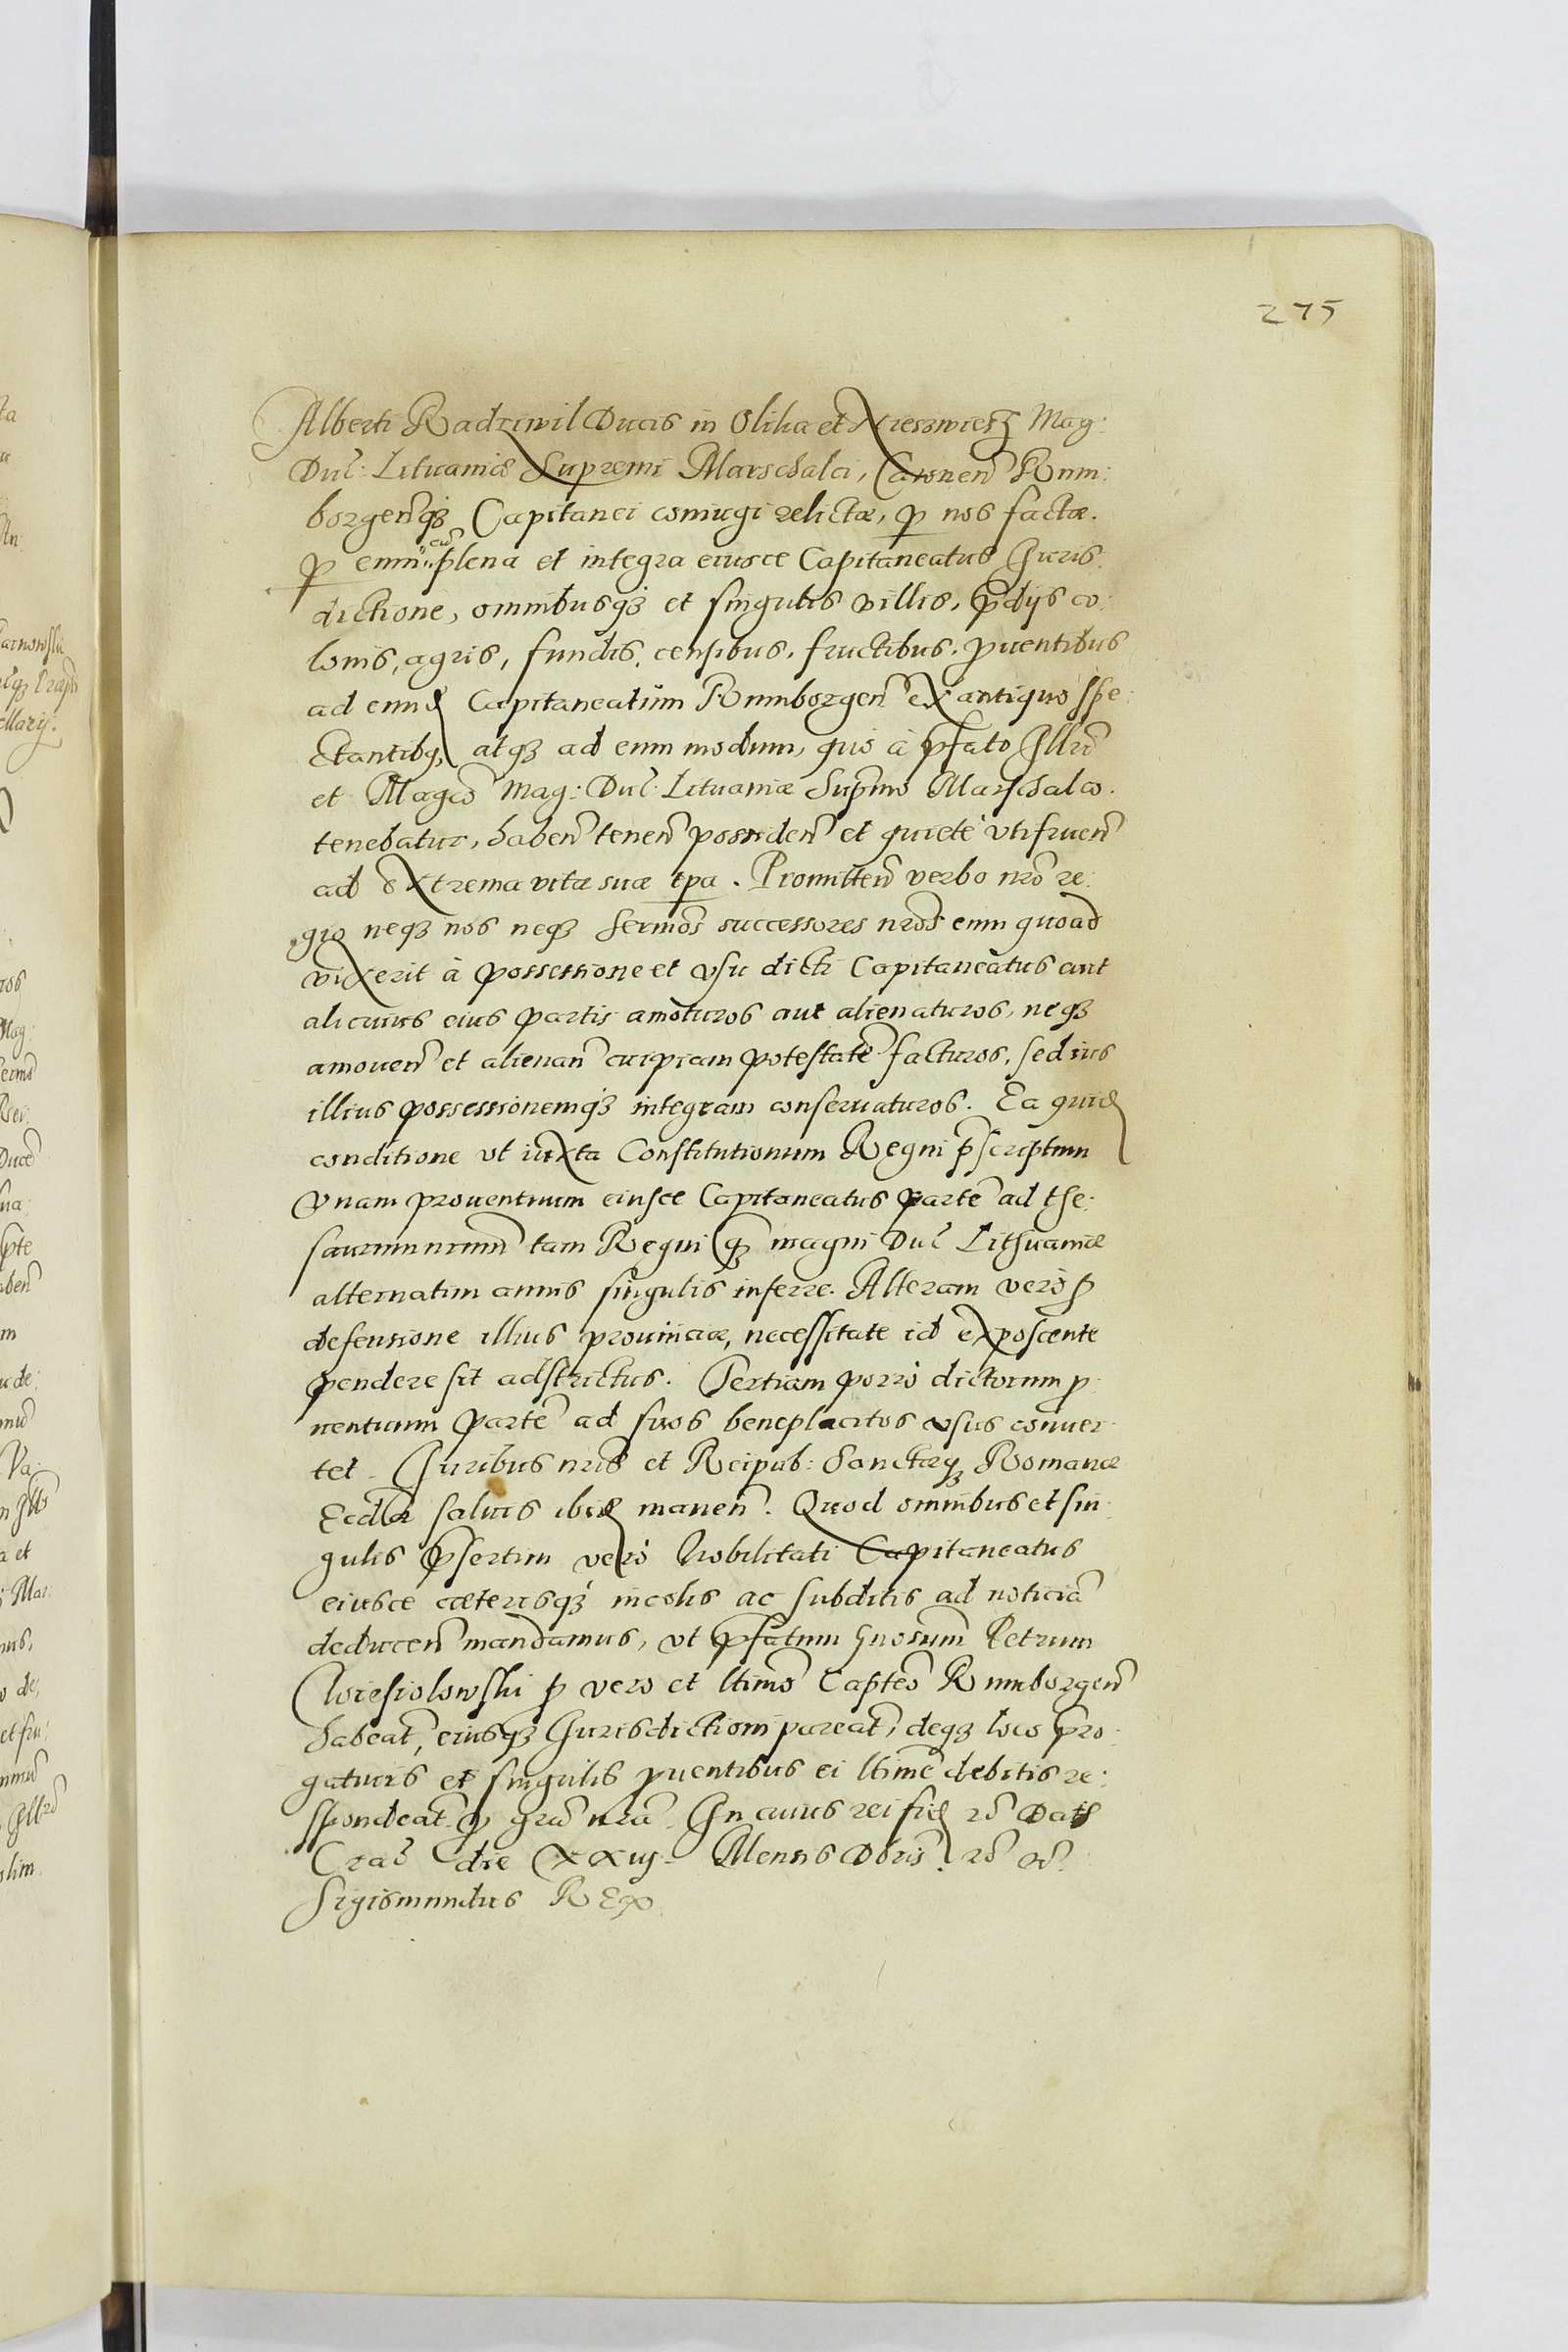 275
Alberti Radziwil Ducis in Olika et Nieszwiesz Mag:
Duc: Lituaniæ Supremi Marschalci, Caronen̄ Rum:
borgen̄q3 Capitanei coniugi relictæ, p nos factæ.
p eum cū plena et integra eiusce Capitaneatus Juris:
dictione, omnibusq3 et singulis villis, p̄dijs co:
lonis, agris, fundis, censibus, fructibus, puentibus
ad eund Capitaneatum Rumborgen̄ ex antiquo spe:
ctantibq, atq3 ad eum modum, quo à p̄fato Illrī
et Magco Mag: Duc: Lituaniæ Supmo Marschalco.
tenebatur, haben̄ tenen̄ possiden̄ et quietè vtifruen̄
ad extrema vitæ suæ tpa. Promitten̄ verbo nr̄o re:
gio neq3 nos neq3 Sermos successores nr̄os eum quoad
vixerit à possessione et vsu dicti Capitaneatus aut
alicuius eius partis amoturos aut alienaturos, neq3
amouen̄ et alienan̄ cuipiam potestatē facturos, sed ius
illius possessionemq3 integram conseruaturos. Ea quid
conditione vt iuxta Constitutionum Regni p̄scriptum
vnam prouentuum eiusce Capitaneatus partē ad the:
saurum nrum̄ tam Regni q3 magni Duc Lithuaniæ
alternatim annis singulis inferre. Alteram verò p
defensione illius prouinciæ, necessitate id exposcente
pendere sit adstrictus. Tertiam porrò dictorum p:
uentuum partē ad suos beneplacitos vsus conuer
tet. Juribus nr̄is et Reipub: Sanctæq3 Romanæ
Eccl̄iæ saluis ibid manen̄. Quod omnibus et sin:
gulis p̄sertim verò Nobilitati Capitaneatus
eiusce cæterisq3 incolis ac subditis ad noticiā
deducen̄ mandamus, vt p̄fatum Gnosum̄ Petrum
Wiesiolowski p vero et ltimo Capteo Rumborgen̄
habeat, eiusq3 Jurisdictioni pareat, deq3 loco præro
gatiuis et singulis puentibus ei ltime debitis re:
spondeat p gra nr̄a. In cuius rei fid
Crac die XXVIJ Mensis Obris.
Sigismundus Rex